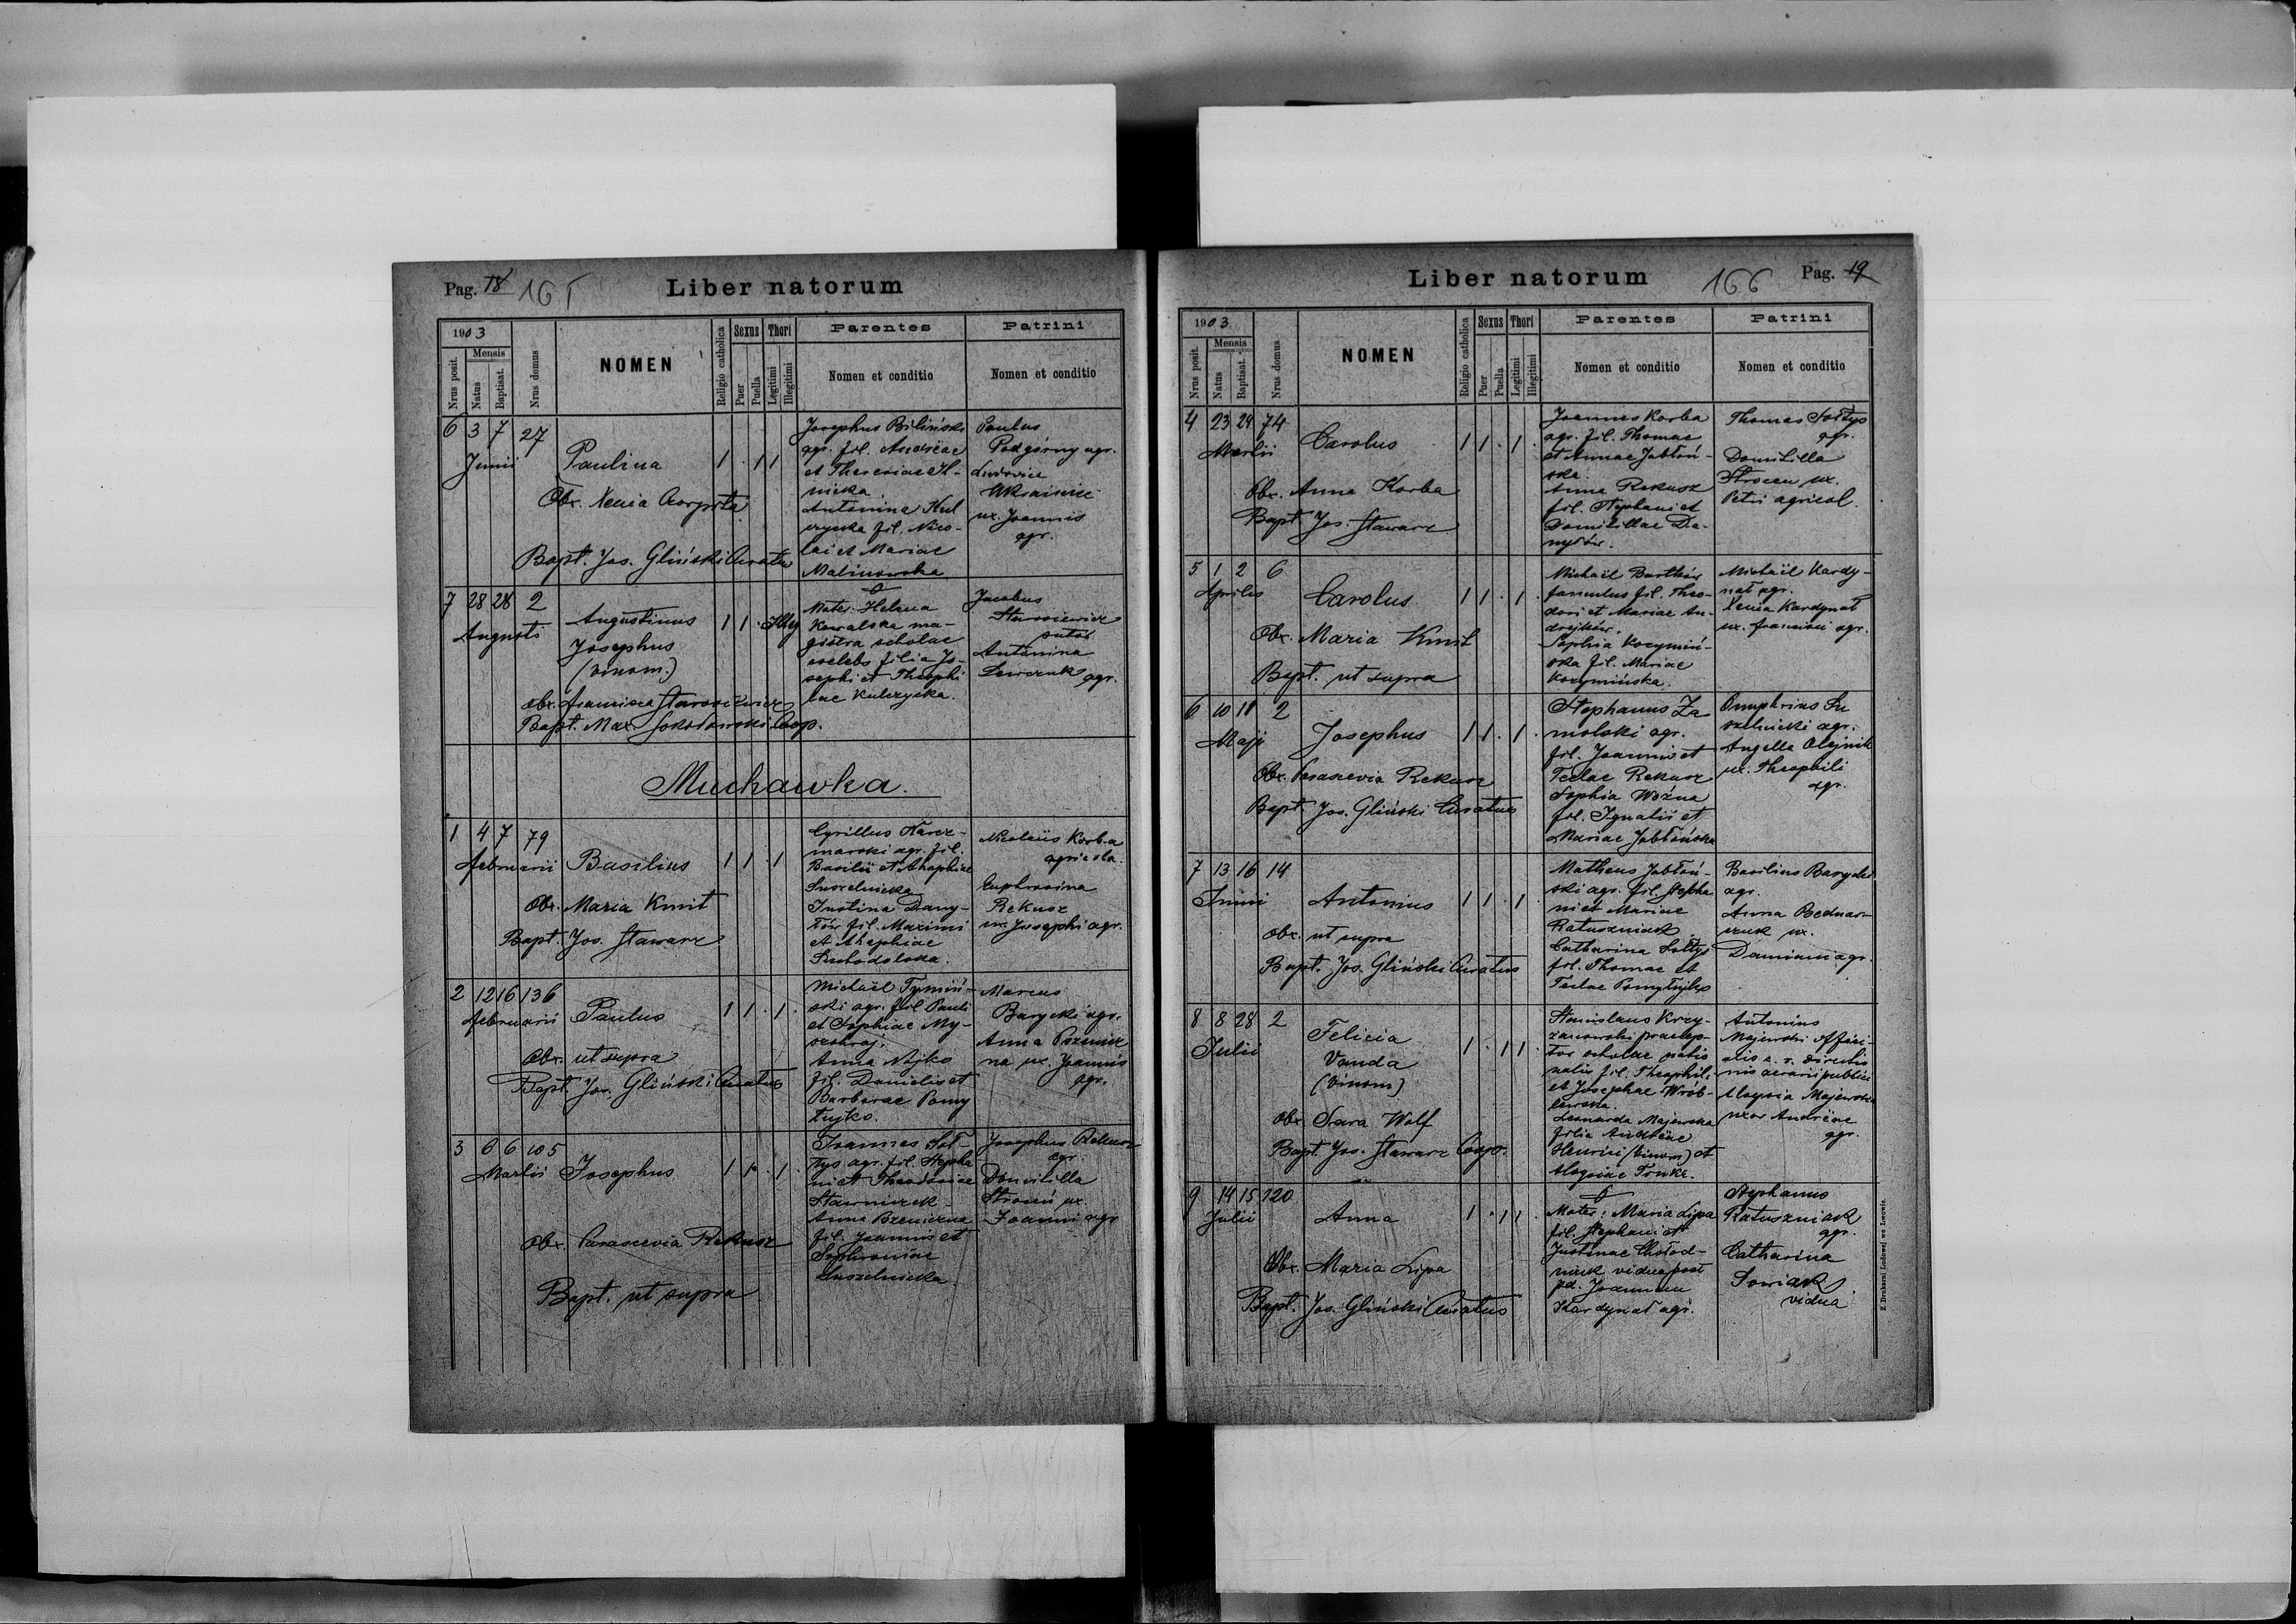 Pag. 18 165
Liber natorum
1903
Nrus posit.
Mensis
Natus
Baptisat.
Nrus domus
NOMEN
Religio catholica
Sexus
Puer
Puella
Thori
Legitimi
Illegitimi
Parentes
Nomen et conditio
Patrini
Nomen et conditio
6 3 7 27
Junii
Paulina
1 . 1 1
Obx. Xenia
Bapt. Jos. Gliński Curatus
Josephus Biliński
agr. fil. Andreae
et Theresiae Il-
nicka
Antonina Kul
czycka fil. Nico-
lai et Mariae
Malinowska
Paulus
Podgórny agr.
Ludovica
ux. Joannis
agr.
7 28 28 2
Augusti
Augustinus
Josephus
(binom.)
1 1 . Illeg
obx. Francisca Starosiewicz
Bapt. Max. Sokołowski Coop.
Mater: Helena
Kowalska ma-
gistra scholae
coelebs filia Jo-
sephi et Theophi
lae Kulczycka.
Jacobus
Starosiewicz
sutor
Antonina
Lewczuk agr.
Muchawka.
1 4 7 79
Februarii
Basilius
1 1 . 1
Obx. Maria Kmit
Bapt. Jos. Stawarz
Cyrillus Karcz-
marski agr. fil.
Basilii et Ahaphiae
Suszelnicka
Justina Dany-
łów fil. Maximi
et Ahaphiae
Swobodska.
Nicolaus Korba
agricola.
Euphrosina
Rekusz
ux. Josephi agr.
2 12 16 136
Februarii
Paulus
1 1 . 1 .
Obx. ut supra
Bapt. Jos. Gliński Curatus
Michaël Tymiń-
ski agr. fil. Pauli
et Sophiae My-
szkraj.
Anna Myko
fil. Danielis et
Barbarae Pomy
łujko.
Marcus
Barycki agr.
Anna Pszenicz
na ux. Joannis
agr.
3 6 6 105
Martii
Josephus
1 1 . 1 .
Obx. Parascevia Rekusz
Bapt. ut supra
Joannes Soł-
tys agr. fil. Stepha
ni et Theodosiae
Stawniczek
Anna
fil. Joannis et
Sophroniae
Suszelnicka.
Josephus Rekusz
agr.
Domitilla
Stroceń ux.
Joannis agr.
Liber natorum
166 Pag. 19
1903
Nrus posit.
Mensis
Natus
Baptisat.
Nrus domus
NOMEN
Religio catholica
Sexus
Puer
Puella
Thori
Legitimi
Illegitimi
Parentes
Nomen et conditio
Patrini
Nomen et conditio
4 23 24 74
Martii
Carolus
1 1 . 1 .
Obx. Anna Korba
Bapt. Jos. Stawarz
Joannes Korba
agr. fil. Thomae
et Annae Jabłoń-
ska.
Anna Rekusz
fil. Stephani et
Domitillae Da-
nyłów.
Thomas Sołtys
agr.
Domitilla
Stroceń ux.
Petri agricol.
5 1 2 6
Aprilis
Carolus
1 1 . 1 .
Obx. Maria Kmit
Bapt. ut supra
Michaël Bartków
famulus fil. Theo-
dori et Mariae An-
drejków.
Sophia Kozymiń-
ska fil. Mariae
Kozymińska.
Michaël Kardy-
nał agr.
Xenia Kardynał
ux. Francisci agr.
6 10 11 2
Maji
Josephus
1 1 . 1 .
Obx. Parascevia Rekusz
Bapt. Jos. Gliński Curatus
Stephanus Za
molski agr.
fil. Joannis et
Teclae Rekusz
Sophia Woźna
fil. Ignatii et
Mariae Jabłońska
Onuphrius Su
szelnicki agr.
Angella Olejnik
ux. Theophili
agr.
7 13 16 14
Junii
Antonius
1 1 . 1 .
obx. ut supra
Bapt. Jos. Gliński Curatus
Matheus Jabłoń-
ski agr. fil. Stepha
ni et Mariae
Ratuszniak
Catharina Sołtys
fil. Thomae et
Teclae Pomyłujko
Basilius Barycki
agr.
Anna Bednar-
czuk ux.
Damiani agr.
8 8 28 2
Julii
Felicia
Vanda
(binom)
1 . 1 1
Obx. Sara Wolf
Bapt. Jos. Stawarz Coop.
Stanislaus Krzy-
żanowski praecep-
tor scholae
fil. Theophili
et Josephae Wrób-
lewska.
Leonarda Majewska
filia Andreae
Henrici (binom) et
Aloysiae Trukz.
Antonius
Majewski offici-
alis c. r. directio
nis aerarii publici
Aloysia Majewska
uxor Andreae
agr.
9 14 15 120
Julii
Anna
1 . 1 1
Obx. Maria Lipa
Bapt. Jos. Gliński Curatus
Mater: Maria Lipa
fil. Stephani et
Justinae Chołod-
niuk vidua post
pd. Joannem
Kardynał agr.
Stephanus
Ratuszniak
agr.
Catharina
Sowiak
vidua
Z Drukarni Ludowej we Lwowie.